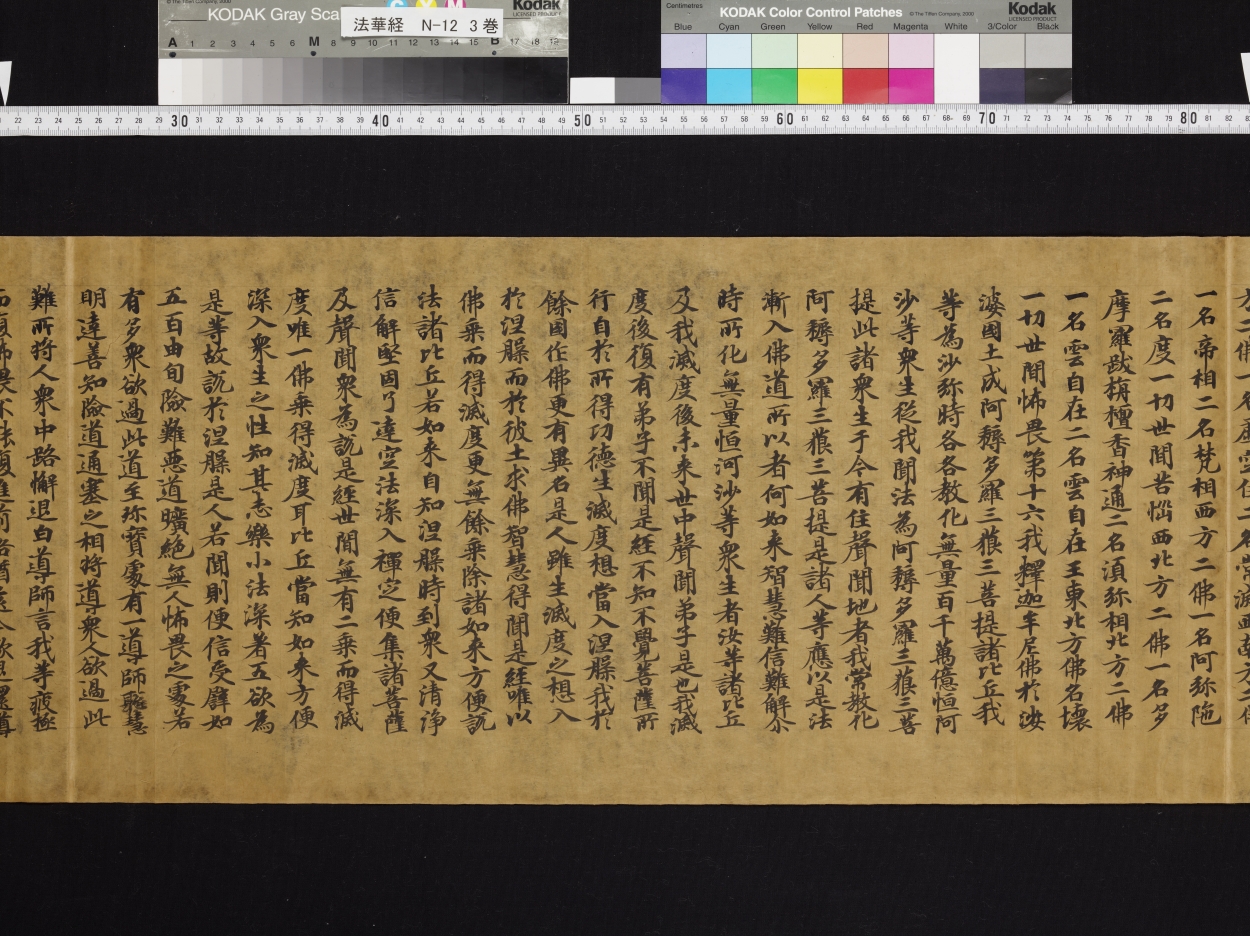 KODAK Gray Sca
Kodak
LICENSED PRODUCT
法華経 N-12 3巻
A 1 2 3 4 5 6 M 8 9 10 11 12 13 14 15 B 17 18 19
Centimetres
KODAK Color Control Patches
© The Tiffen Company, 2000
Kodak
LICENSED PRODUCT
Blue Cyan Green Yellow Red Magenta White 3/Color Black
22 23 24 25 26 27 28 29 30 31 32 33 34 35 36 37 38 39 40 41 42 43 44 45 46 47 48 49 50 51 52 53 54 55 56 57 58 59 60 61 62 63 64 65 66 67 68 69 70 71 72 73 74 75 76 77 78 79 80 81 82
二佛一名虛空住二名常滅西南方二佛
一名帝相二名梵相西方二佛一名阿弥陁
二名度一切世間苦惱西北方二佛一名多
摩羅跋栴檀香神通二名湏弥相北方二佛
一名雲自在二名雲自在王東北方佛名壞
一切世間怖畏第十六我釋迦牟尼佛於娑
婆國土成阿耨多羅三藐三菩提諸比丘我
等為沙弥時各各教化無量百千萬億恒河
沙等衆生從我聞法為阿耨多羅三藐三菩
提此諸衆生于今有住聲聞地者我常教化
阿耨多羅三藐三菩提是諸人等應以是法
漸入佛道所以者何如来智慧難信難解尒
時所化無量恒河沙等衆生者汝等諸比丘
及我滅度後未来世中聲聞弟子是也我滅
度後復有弟子不聞是經不知不覺菩薩所
行自於所得功德生滅度想當入涅槃我於
餘國作佛更有異名是人雖生滅度之想入
於涅槃而於彼土求佛智慧得聞是經唯以
佛乘而得滅度更無餘乘除諸如来方便說
法諸比丘若如来自知涅槃時到衆又清淨
信解堅固了達空法深入禪定便集諸菩薩
及聲聞衆為說是經世間無有二乘而得滅
度唯一佛乘得滅度耳比丘當知如来方便
深入衆生之性知其志樂小法深著五欲為
是等故說於涅槃是人若聞則便信受譬如
五百由旬險難惡道曠絕無人怖畏之處若
有多衆欲過此道至珎寶處有一導師聰慧
明達善知險道通塞之相將導衆人欲過此
難所將人衆中路懈退白導師言我等疲極